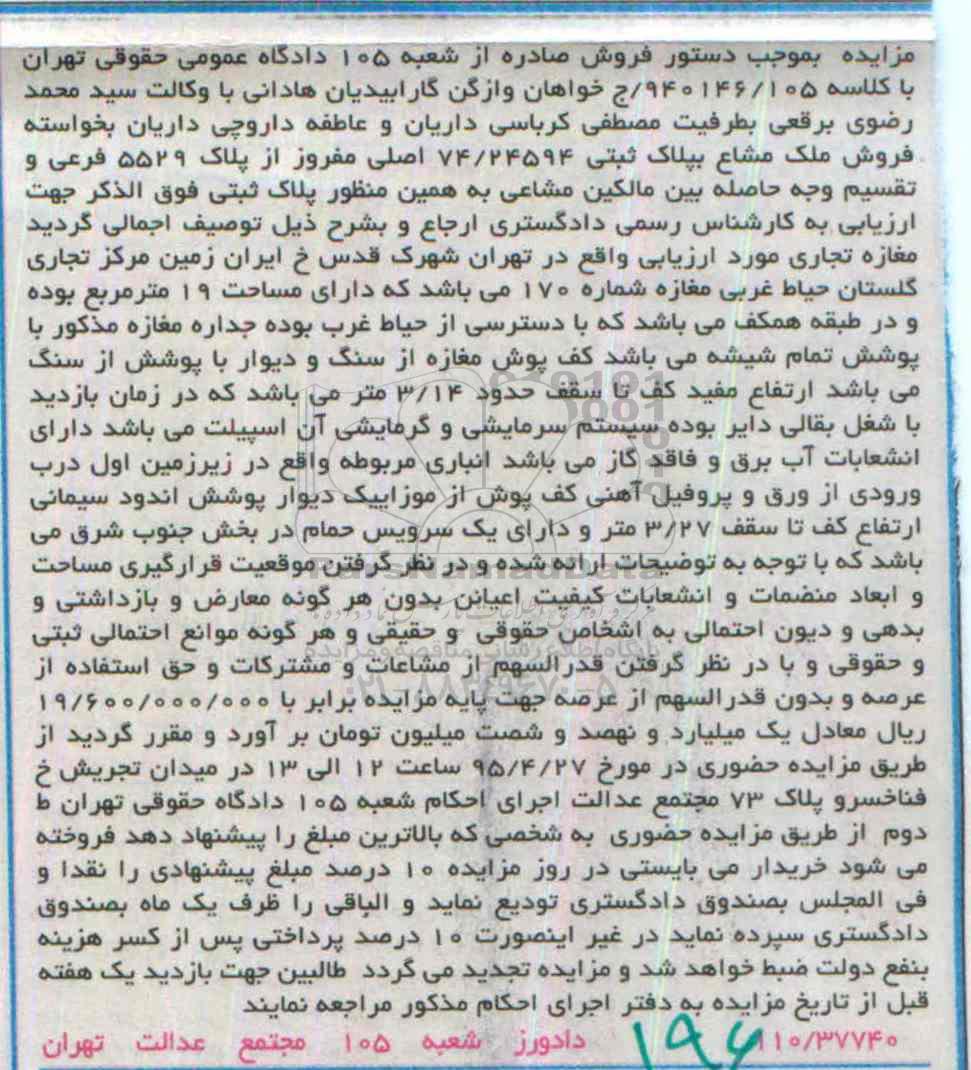 مزایده بموجب دستور فروش صادره از شعبه ۱۰۵ دادگاه عمومی حقوقی تهران
با کلاسه ۹۴۰۱۴۶/۱۰۵/ج خواهان وازگن گارابیدیان هادانی با وکالت سید محمد
رضوی برقعی بطرفیت مصطفی کرباسی داریان و عاطفه داروچی داریان بخواسته
فروش ملک مشاع بپلاک ثبتی ۷۴/۲۴۵۹۴ اصلی مفروز از پلاک ۵۵۲۹ فرعی و
تقسیم وجه حاصله بین مالکین مشاعی به همین منظور پلاک ثبتی فوق الذکر جهت
ارزیابی به کارشناس رسمی دادگستری ارجاع و بشرح ذیل توصیف اجمالی گردید
مغازه تجاری مورد ارزیابی واقع در تهران شهرک قدس خ ایران زمین مرکز تجاری
گلستان حیاط غربی مغازه شماره ۱۷۰ می باشد که دارای مساحت ۱۹ مترمربع بوده
و در طبقه همکف می باشد که با دسترسی از حیاط غرب بوده جداره مغازه مذکور با
پوشش تمام شیشه می باشد کف پوش مغازه از سنگ و دیوار با پوشش از سنگ
می باشد ارتفاع مفید کف تا سقف حدود ۳/۱۴ متر می باشد که در زمان بازدید
با شغل بقالی دایر بوده سیستم سرمایشی و گرمایشی آن اسپیلت می باشد دارای
انشعابات آب برق و فاقد گاز می باشد انباری مربوطه واقع در زیرزمین اول درب
ورودی از ورق و پروفیل آهنی کف پوش از موزاییک دیوار پوشش اندود سیمانی
ارتفاع کف تا سقف ۳/۲۷ متر و دارای یک سرویس حمام در بخش جنوب شرق می
باشد که با توجه به توضیحات ارائه شده و در نظر گرفتن موقعیت قرارگیری مساحت
و ابعاد منضمات و انشعابات کیفیت اعیانی بدون هر گونه معارض و بازداشتی و
بدهی و دیون احتمالی به اشخاص حقوقی و حقیقی و هر گونه موانع احتمالی ثبتی
و حقوقی و با در نظر گرفتن قدرالسهم از مشاعات و مشترکات و حق استفاده از
عرصه و بدون قدرالسهم از عرصه جهت پایه مزایده برابر با ۱۹/۶۰۰/۰۰۰/۰۰۰
ریال معادل یک میلیارد و نهصد و شصت میلیون تومان بر آورد و مقرر گردید از
طریق مزایده حضوری در مورخ ۹۵/۴/۲۷ ساعت ۱۲ الی ۱۳ در میدان تجریش خ
فناخسرو پلاک ۷۳ مجتمع عدالت اجرای احکام شعبه ۱۰۵ دادگاه حقوقی تهران ط
دوم از طریق مزایده حضوری به شخصی که بالاترین مبلغ را پیشنهاد دهد فروخته
می شود خریدار می بایستی در روز مزایده ۱۰ درصد مبلغ پیشنهادی را نقدا و
فی المجلس بصندوق دادگستری تودیع نماید و الباقی را ظرف یک ماه بصندوق
دادگستری سپرده نماید در غیر اینصورت ۱۰ درصد پرداختی پس از کسر هزینه
بنفع دولت ضبط خواهد شد و مزایده تجدید می گردد طالبین جهت بازدید یک هفته
قبل از تاریخ مزایده به دفتر اجرای احکام مذکور مراجعه نمایند
۱۱۰/۳۷۷۴۰ ۱۹۶ دادورز شعبه ۱۰۵ مجتمع عدالت تهران
ParsNamadData